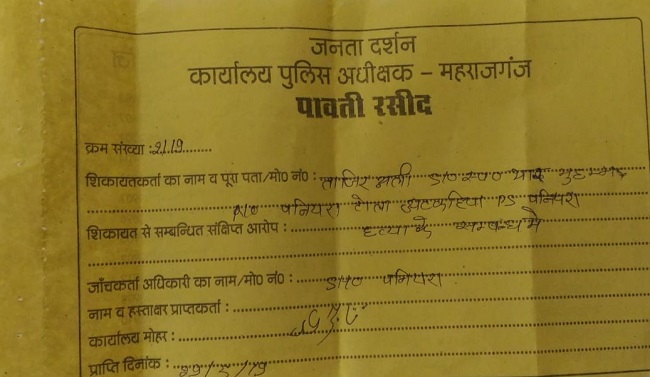 जनता दर्शन
कार्यालय पुलिस अधीक्षक – महराजगंज
पावती रसीद
क्रम संख्या : 2119
शिकायतकर्ता का नाम व पूरा पता/मो0 नं0 : अली मुहम्मद
पनियरा टोला PS पनियरा
शिकायत से सम्बन्धित संक्षिप्त आरोप : हत्या के सम्बन्ध में
जाँचकर्ता अधिकारी का नाम/मो0 नं0 : पनियरा
नाम व हस्ताक्षर प्राप्तकर्ता :
कार्यालय मोहर :
प्राप्ति दिनांक :